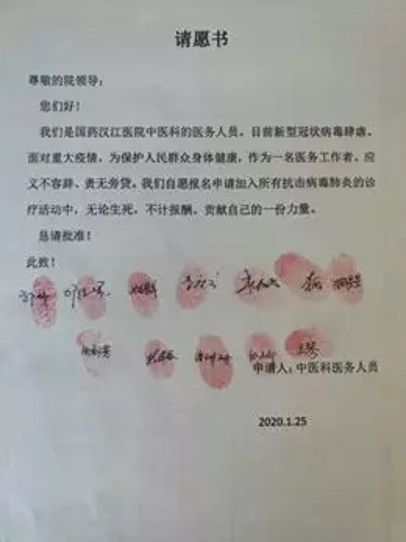 请愿书
尊敬的院领导：
您们好！
我们是国药汉江医院中医科的医务人员。目前新型冠状病毒肆虐。
面对重大疫情，为保护人民群众身体健康，作为一名医务工作者，应
义不容辞、责无旁贷。我们自愿报名申请加入所有抗击病毒肺炎的诊
疗活动中，无论生死，不计报酬、贡献自己的一份力量。
恳请批准！
此致！
申请人：中医科医务人员
2020.1.25